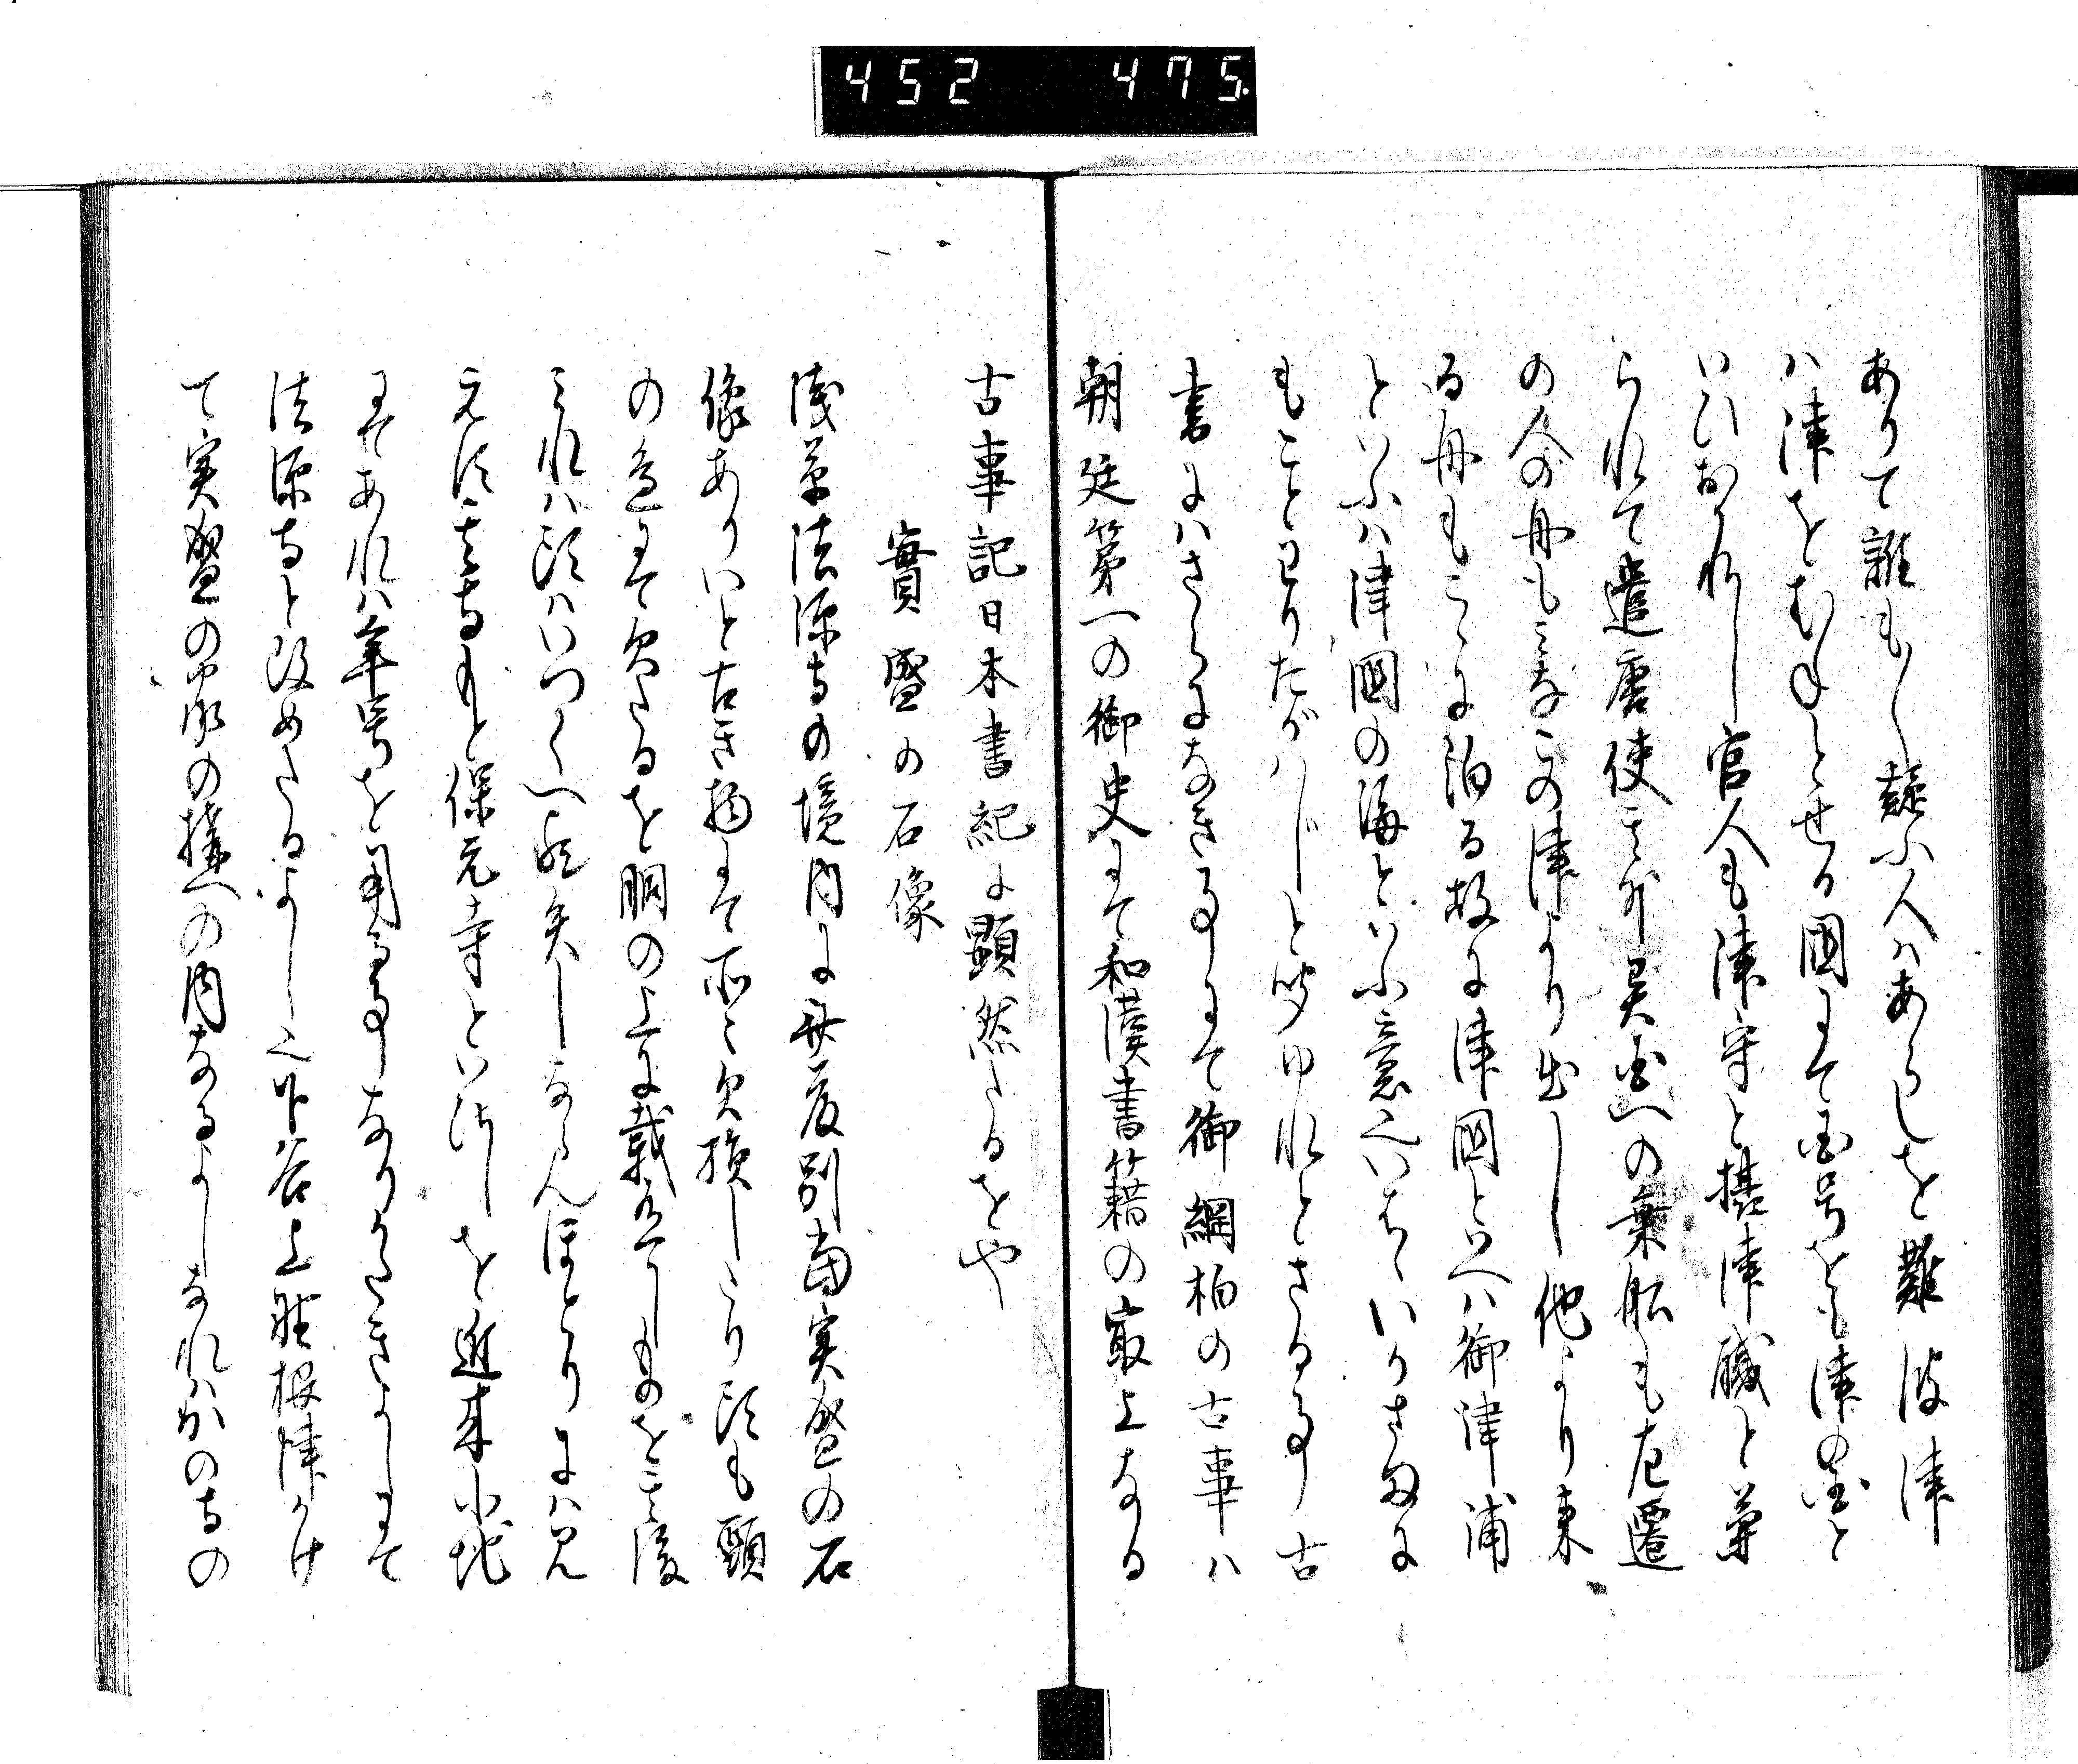 452 475
ありて誰も〳〵疑ふ人ハあらしを難波津
ハ津をむねとせる國にて国号をも津の国と
いひおかれし官人も津守と攝津職と
られて遣唐使其外異国への乗船も左遷
の人の舟もミなこの津より出し他より来
る舟もこゝに泊る故に津國といへハ御津浦
といふハ津國の海といふ意也いはゝいかさまに
もことわりたがハじと聞ゆれとさる事古
書にハさらになき事にて御綱柏の古事ハ
朝廷第一の御史にて和漢書籍の最上なる
古事記日本書紀に顕然たるをや
實盛の石像
浅草法源寺の境内に斎藤別当実盛の石
像ありいと古き物にて所々欠損したり頭も頸
の邊にて欠たるを胴の上に載置しものを其後
ミれハ頭ハいつくへ紛失しなんほとりにハ見
えす其寺もと保元寺といひしを近来小地
にてあれハ年号を用る事なりかたきよしにて
法源寺と改めたるよし也下谷上野根津かけ
て実盛の所の構への内なるよしなれハかの寺の